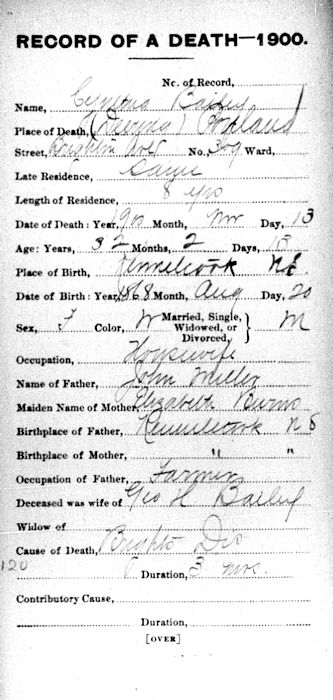 RECORD OF A DEATH—1900.
No. of Record,
Name, Cynthia Bailey
Place of Death, (Deering) Portland
Street, Brighton Ave No. 309 Ward,
Late Residence, Same
Length of Residence, 8 yrs
Date of Death: Year, 1900 Month, Nov Day, 13
Age: Years, 32 Months, 2 Days, 13
Place of Birth, Kennetcook N.S.
Date of Birth: Year, 1868 Month, Aug Day, 20
Sex, F Color, W Married, Single, Widowed, or Divorced, M
Occupation, Housewife
Name of Father, John Miller
Maiden Name of Mother, Elizabeth Burns
Birthplace of Father, Kennetcook N S
Birthplace of Mother, " "
Occupation of Father, Farmer
Deceased was wife of Geo H Bailey
Widow of
Cause of Death, Brights Dis
120
Duration, 3 mos.
Contributory Cause,
Duration,
[OVER]